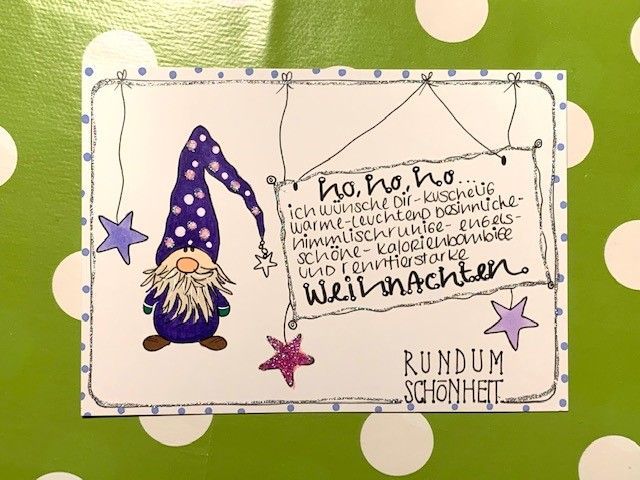 ho, ho, ho...
ich wünsche Dir-kuschelig
warme-leuchtend besinnliche-
himmlischruhige-engels-
schöne-kalorienbombige
und renntierstarke
Weihnachten.
RUNDUM
SCHÖNHEIT